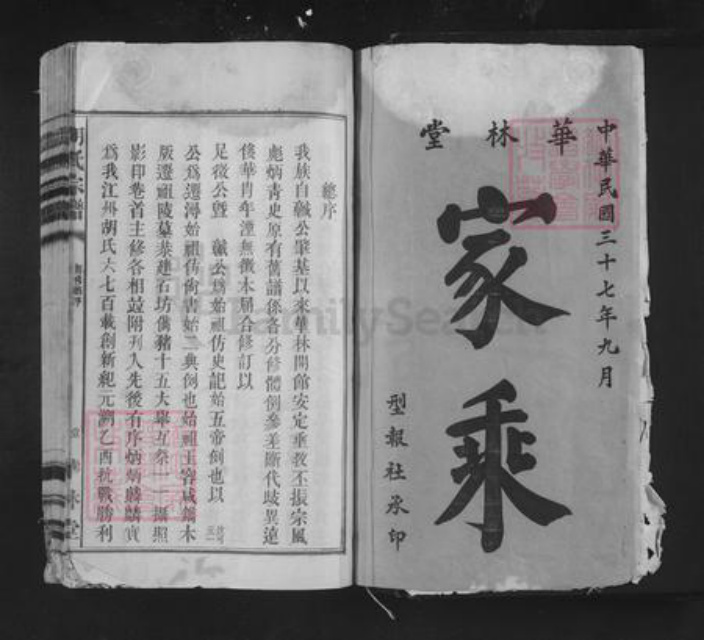 中華民國三十七年九月
華林堂
家乘
型報社承印
總序
我族自馘公肇基以來華林開館安定垂教丕振宗風
彪炳青史原有舊譜係各分修體例參差斷代歧異遠
後華冑年湮無徵本屆合修訂以
足徵公暨 馘公為始祖仿史記始五帝例也以
公為遷潯始祖仿尚書始二典例也始祖玉容咸鐫木
版遷祖陵墓恭建石坊儀豬十五大舉互祭一一攝照
影印卷首主修各相並附列入先後有序炳炳麟麟實
為我江州胡氏六七百載創新紀元溯乙酉抗戰勝利
胡氏宗譜
華林堂
FamilySearch